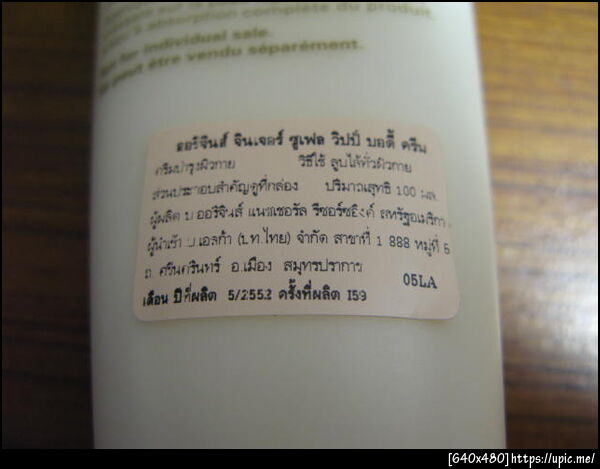 absorption complète du produit.
for individual sale.
peut être vendu séparément.
ออริจินส์ จินเจอร์ ซูเฟล วิปป์ บอดี้ ครีม
ครีมบำรุงผิวกาย วิธีใช้ ลูบไล้ทั่วผิวกาย
ส่วนประกอบสำคัญดูที่กล่อง ปริมาณสุทธิ 100 มล.
ผู้ผลิต บ.ออริจินส์ แนชเชอรัล รีซอร์ซอิงค์ สหรัฐอเมริกา
ผู้นำเข้า บ.เอลก้า (ป.ท.ไทย) จำกัด สาขาที่ 1 888 หมู่ที่ 5
ถ. ศรีนครินทร์ อ.เมือง สมุทรปราการ
05LA
เดือน ปีที่ผลิต 5/2552 ครั้งที่ผลิต I59
[640x480]https://upic.me/